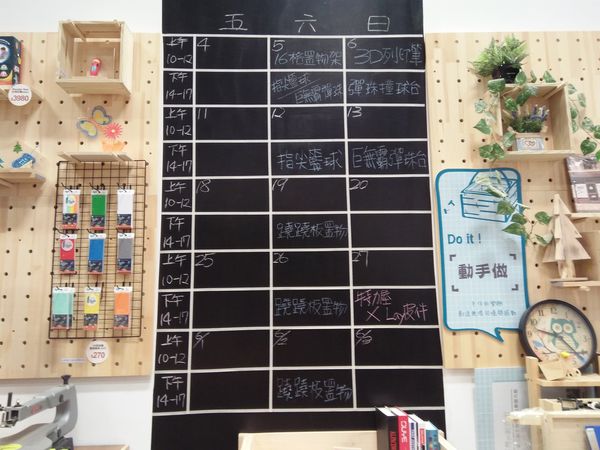 五 六 日
上午 10-12 4 5 16格置物架 6 3D列印筆
下午 14-17 指尖籃球 巨無霸彈珠台 彈珠撞球台
上午 10-12 11 12 13
下午 14-17 指尖籃球 巨無霸彈珠台
上午 10-12 18 19 20
下午 14-17 蹺蹺板置物
上午 10-12 25 26 27
下午 14-17 蹺蹺板置物 特力屋 X Lay皮件
上午 10-12 5/1 5/2 5/3
下午 14-17 蹺蹺板置物
$3980
$270
Do it!
動手做